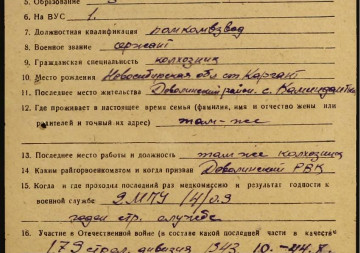 5. Образование 3
6. На ВУС 1.
7. Должностная квалификация помкомвзвод
8. Военное звание сержант
9. Гражданская специальность колхозник
10. Место рождения Новосибирская обл ст Каргат
11. Последнее место жительства Доволинский район. с.
12. Где проживает в настоящее время семья (фамилия, имя и отчество жены или
родителей и точный их адрес) там-же
13. Последнее место работы и должность там же колхозник
14. Каким райгорвоенкоматом и когда призван Доволинский РВК
15. Когда и где проходил последний раз медкомиссию и результат годности к
военной службе
годен стр. службе
16. Участие в Отечественной войне (в составе какой последней части в качест
179 стрел. дивизия 1943